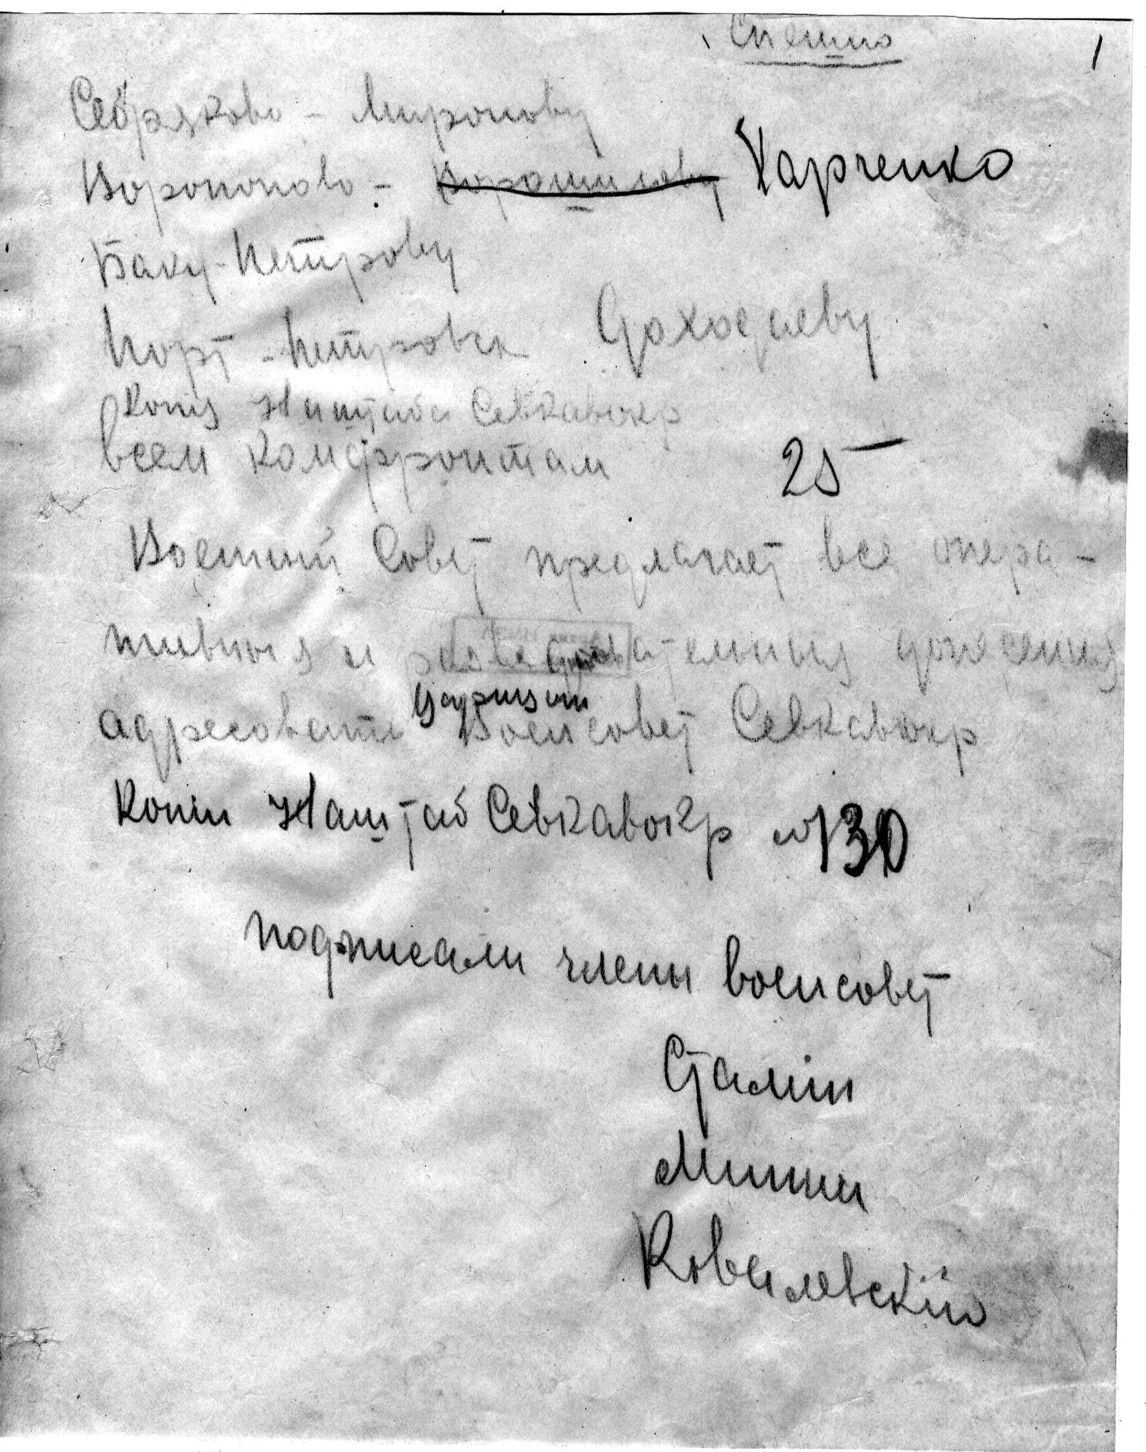 Спешно
1
Себряково - Миронову
Воропоново - Ворошилову Харченко
Баку - Петрову
Порт - Петровск Доходаеву
Копия Наштаба Севкавокр
всем комфронтам 25
Военный Совет предлагает все опера-
тивныя и разведовательныя донесения
Царицын
адресовати Военсовет Севкавокр
Копии Наштаб Севкавокр №130
подписали члены военсовет
Сталин
Минин
Ковалевский